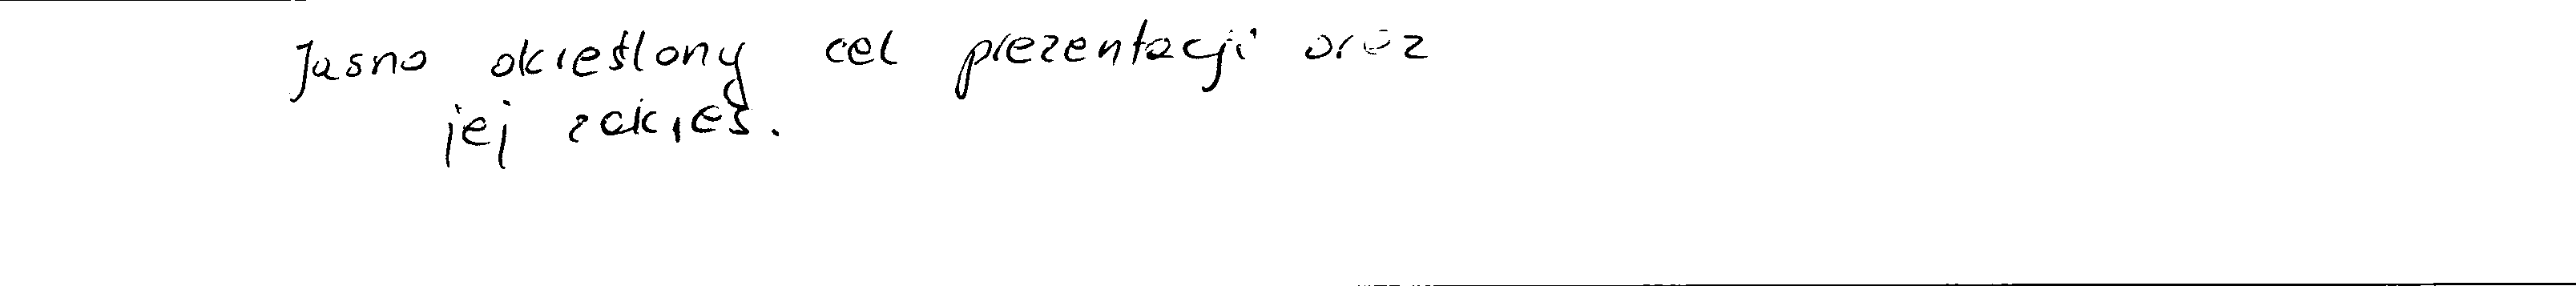 Jasno określony cel prezentacji oraz
jej zakres.